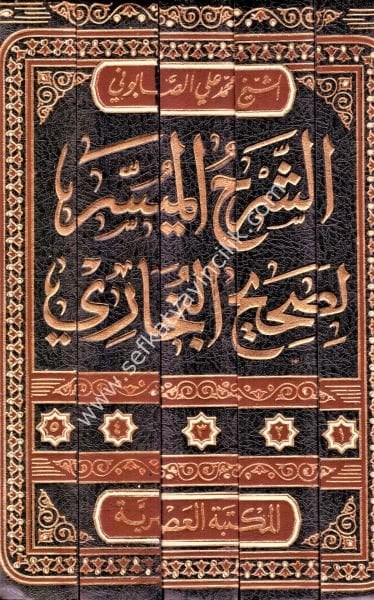 الشيخ محمد علي الصابوني
الشرح الميسر
لصحيح البخاري
١ ٢ ٣ ٤ ٥
المكتبة العصرية
www.sefkatyayincilik.com